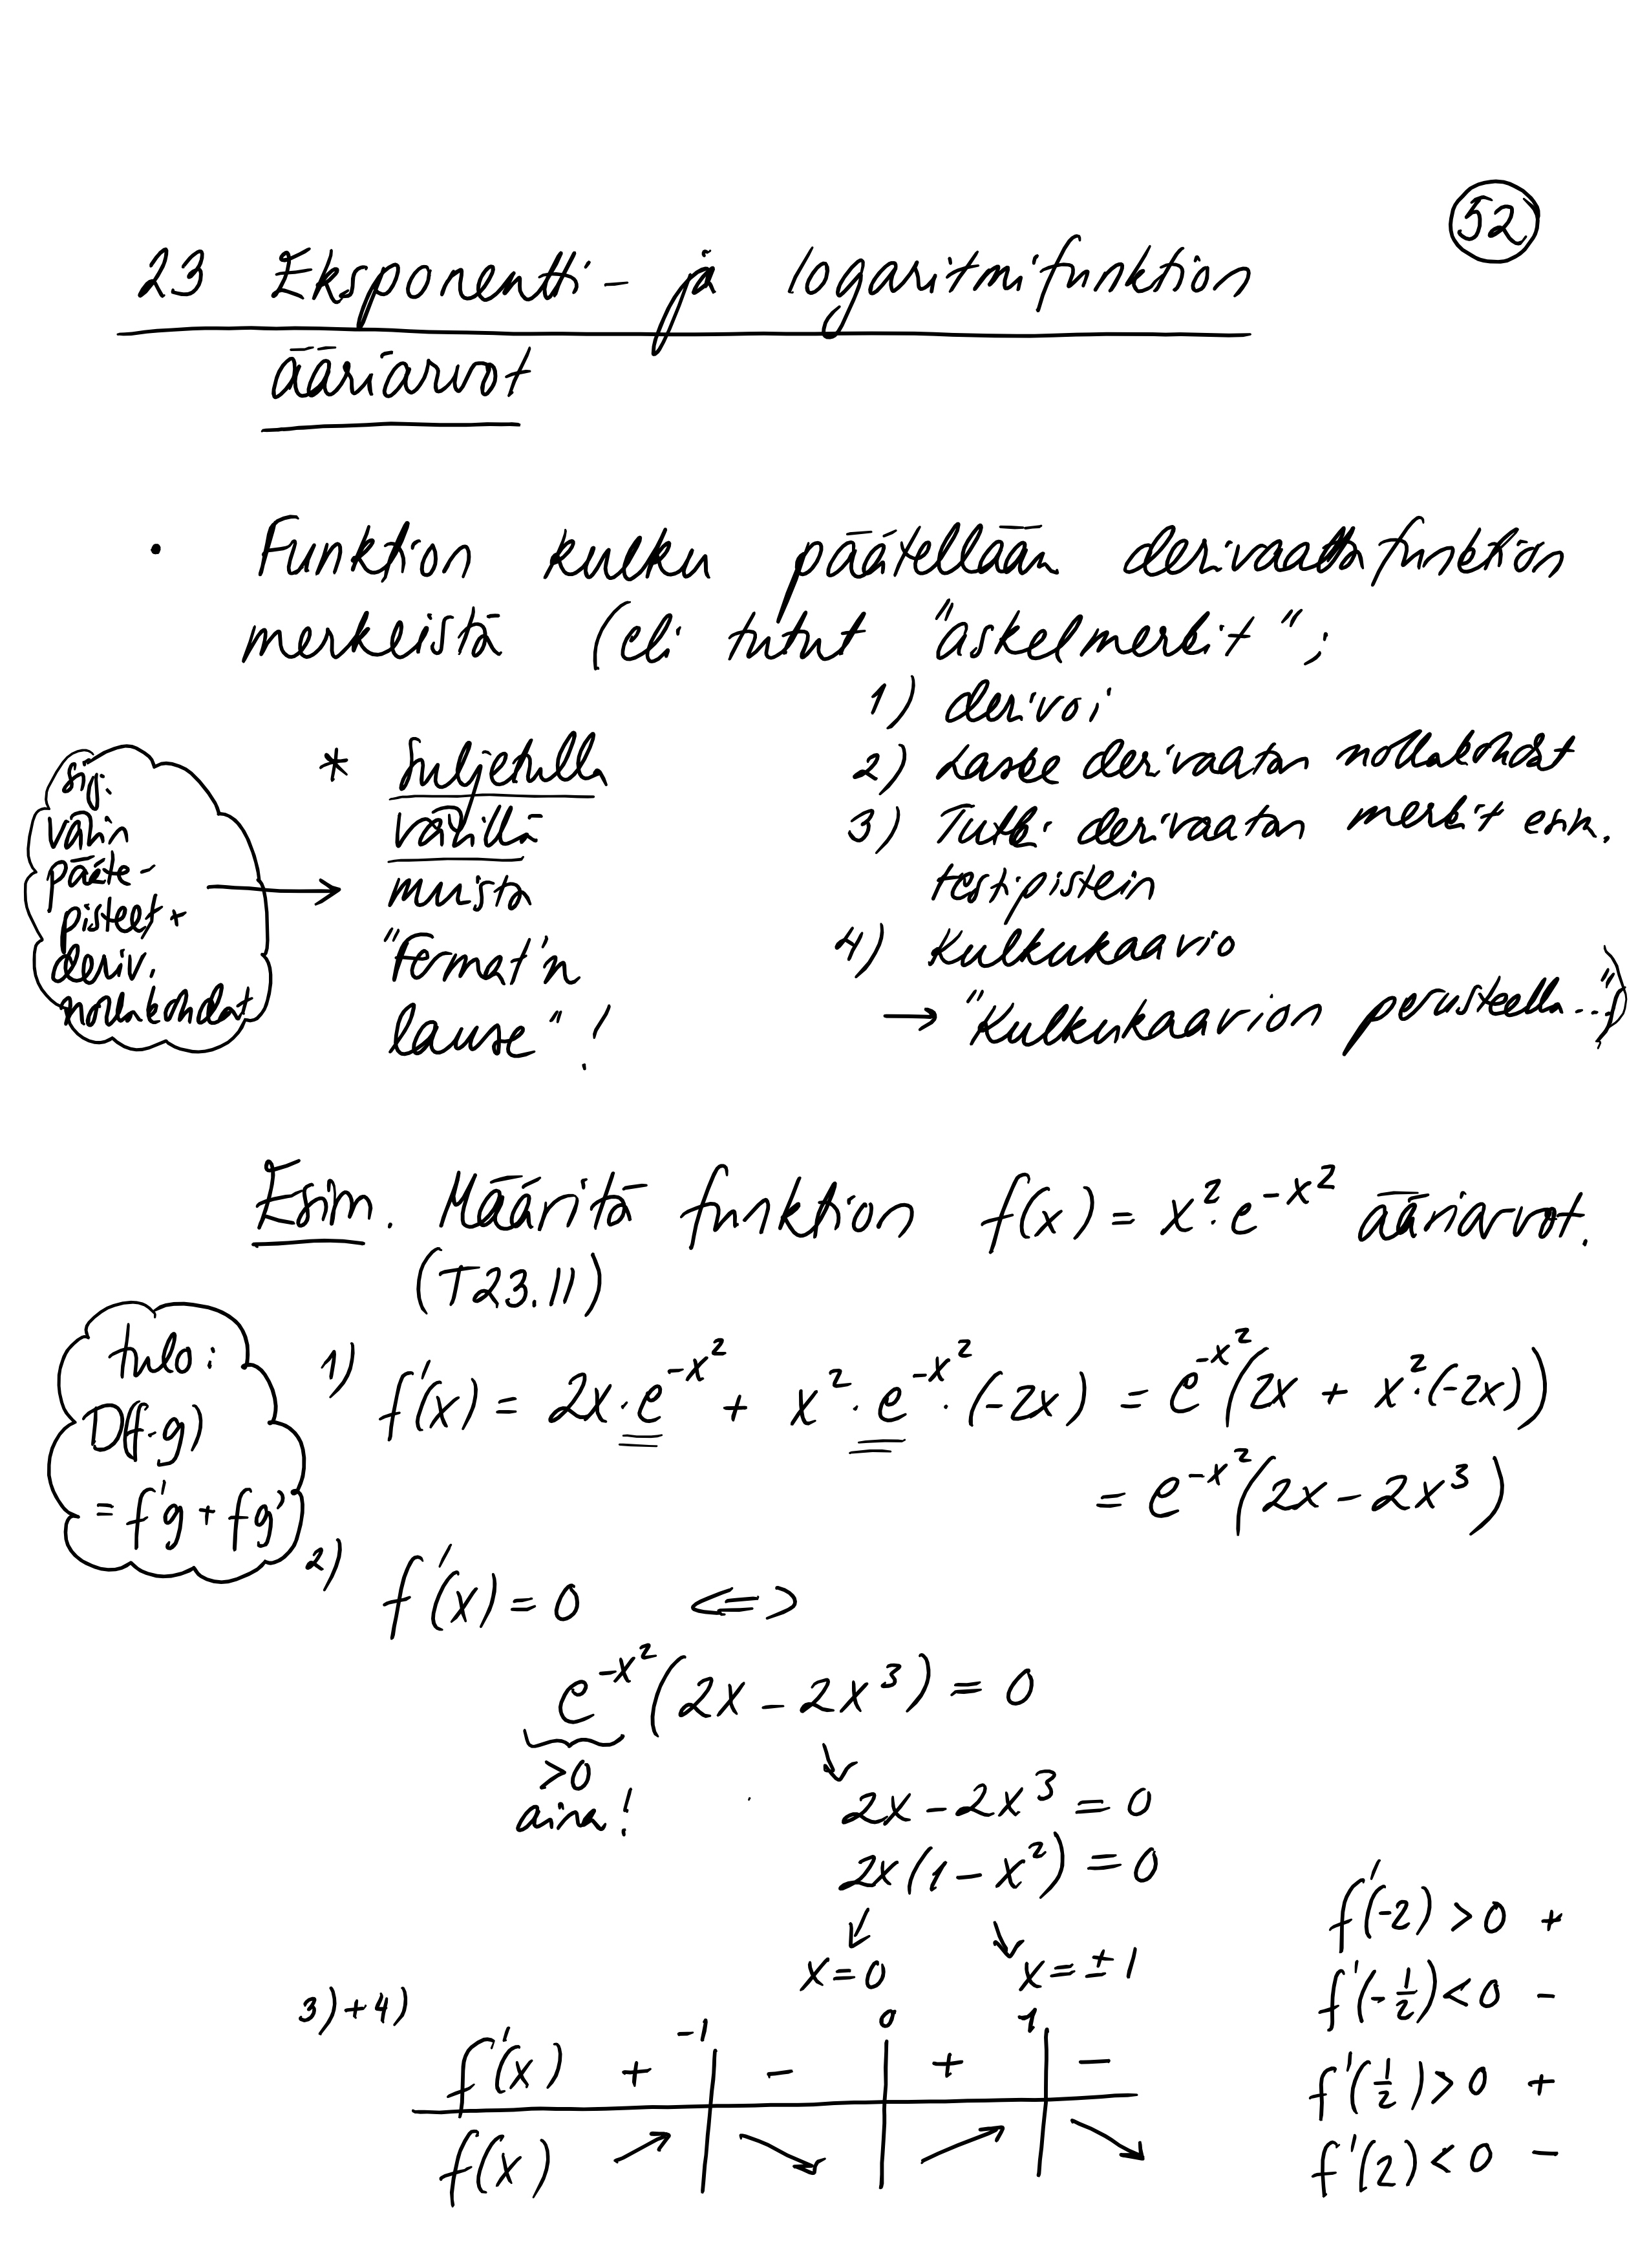 52
23 Eksponentti- ja logaritmifunktion
ääriarvot
• Funktion kulku päätellään derivaattafunktion
merkeistä (eli tutut "askelmerkit";
1) derivoi
2) Laske derivaatan nollakohdat
3) Tutki derivaatan merkit esim.
testipistein
4) Kulkukaavio
→ "Kulkukaavion perusteella...")
* Suljetulla
välillä
muista
"Fermat'n
lause"!
sij.
välin
pääte-
pisteet +
deriv.
nollakohdat
→
Esim. Määritä funktion f(x) = x²·e^(-x²) ääriarvot.
(T23.11)
tulo:
D(f·g)
= f'g + fg'
1) f'(x) = 2x·e^(-x²) + x²·e^(-x²)·(-2x) = e^(-x²)(2x + x²·(-2x))
= e^(-x²)(2x - 2x³)
2) f'(x) = 0 <=>
e^(-x²)(2x - 2x³) = 0
>0
aina!
2x - 2x³ = 0
2x(1 - x²) = 0
x = 0 x = ±1
3)+4)
-1 0 1
f'(x) + - + -
f(x) ↗ ↘ ↗ ↘
f'(-2) > 0 +
f'(-1/2) < 0 -
f'(1/2) > 0 +
f'(2) < 0 -